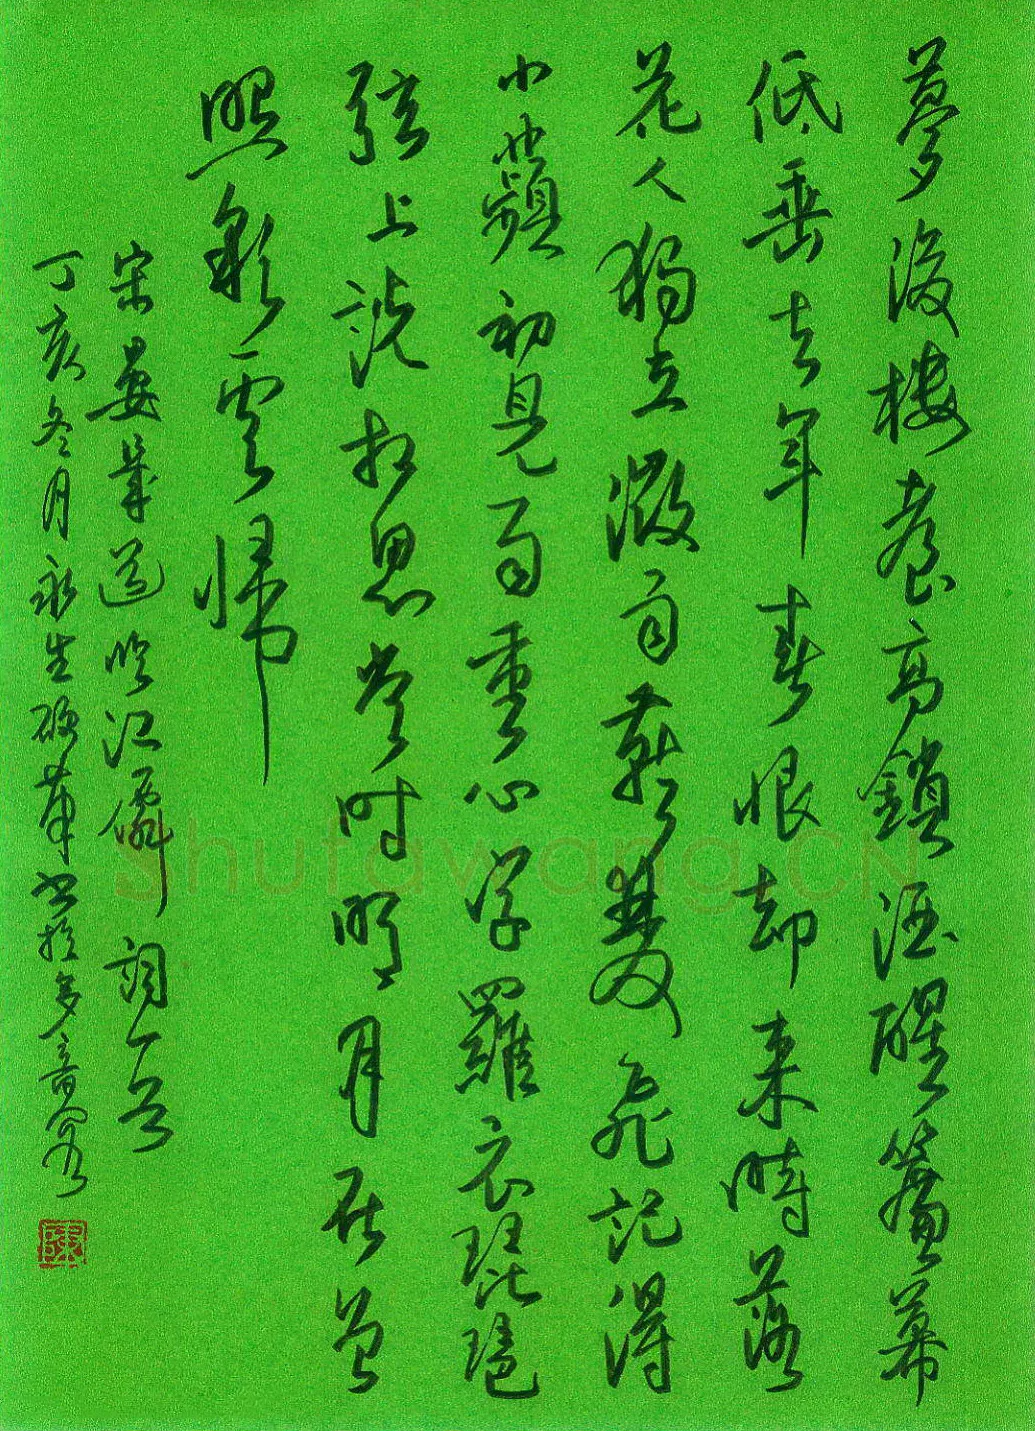 夢後樓臺高鎖酒醒簾幕
低垂去年春恨却来時落
花人獨立微雨燕雙飛記得
小蘋初見兩重心字羅衣琵琶
弦上說相思當时明月在曾
照彩雲歸
宋晏幾道臨江僊詞一首
丁亥冬月永生硬筆书於
Shufawang.CN